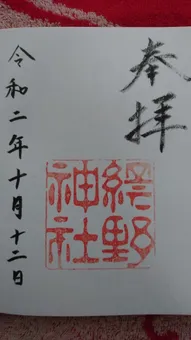 奉拝
網野
神社
令和二年十月十二日